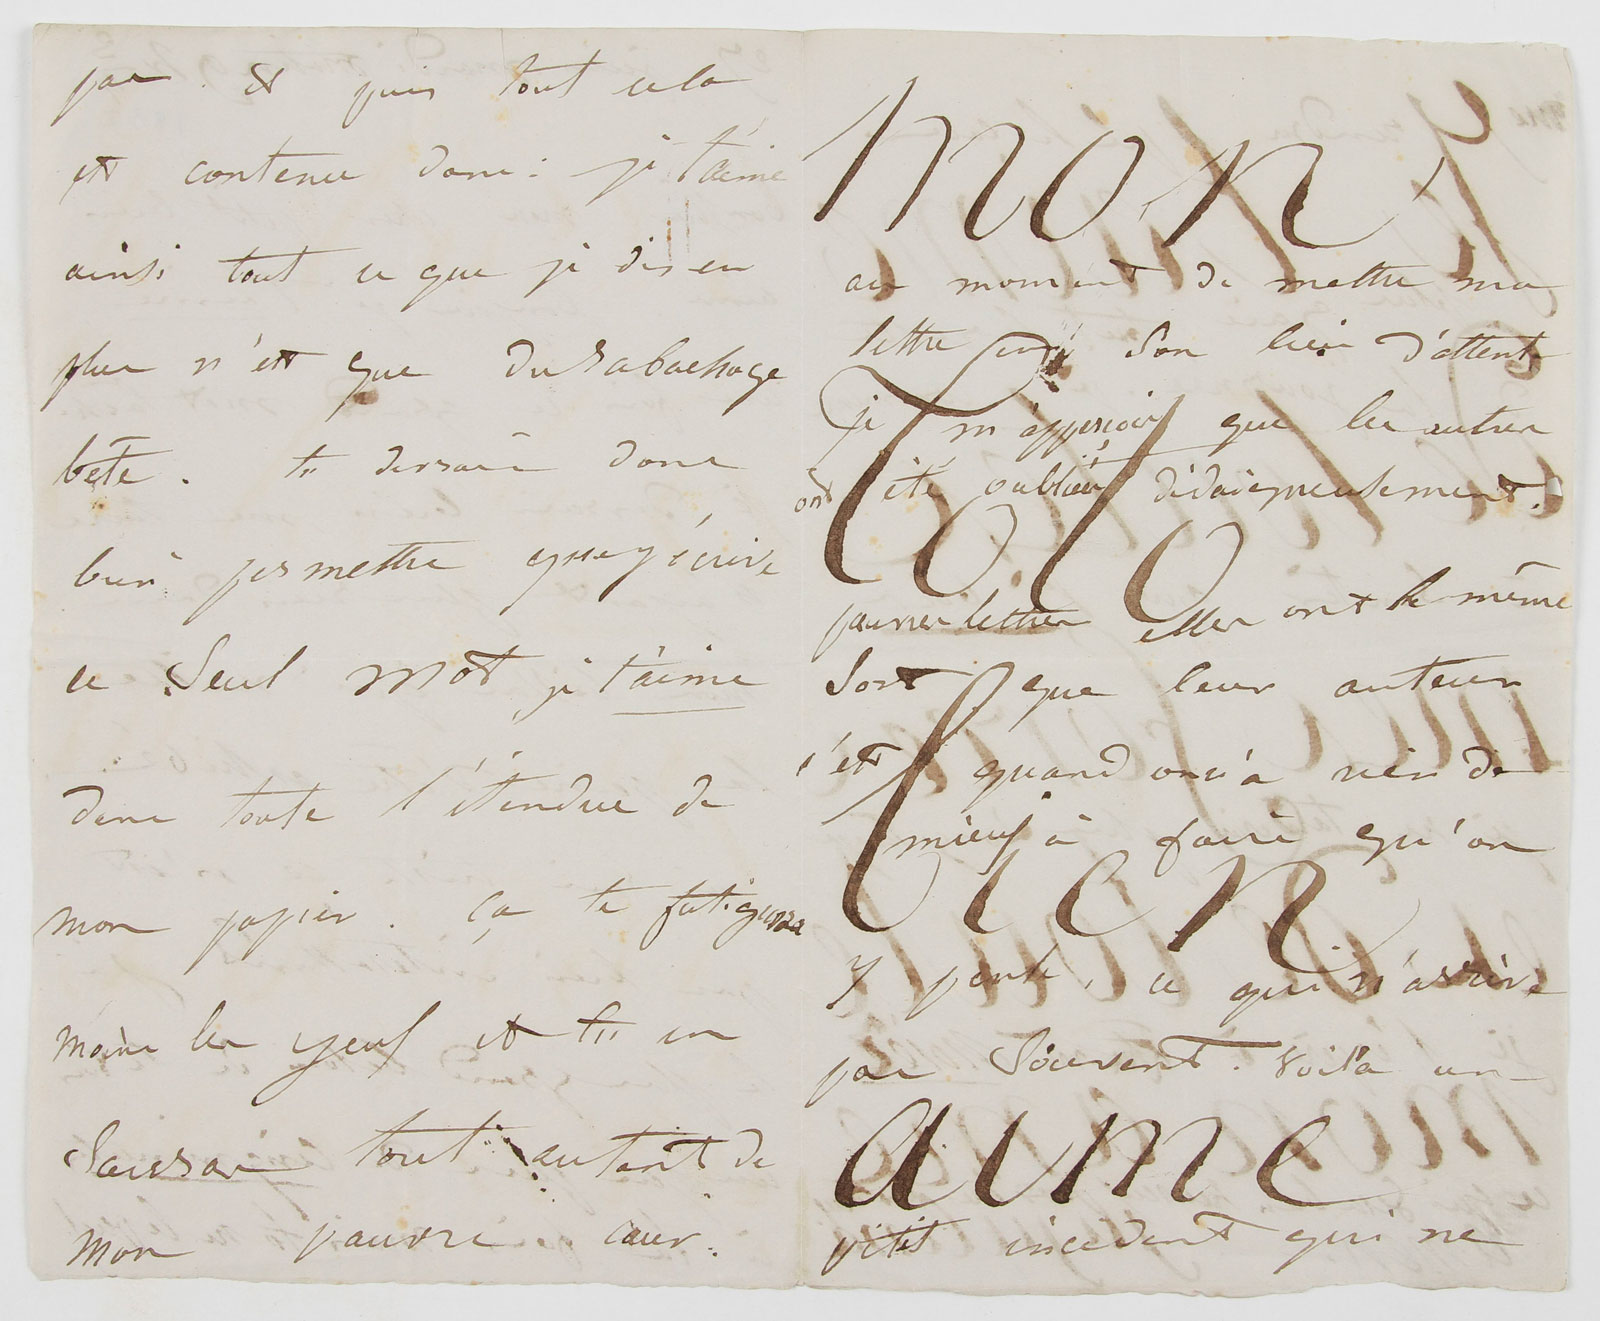 pas et puis tout cela
est contenu dans : je t'aime
ainsi tout ce que je dis en
plus n'est que du rabachage
bête. tu devrais donc
bien permettre que j'écrive
ce seul mot je t'aime
dans toute l'étendue de
mon papier. ça te fatiguera
moins les yeux et tu en
sauras tout autant de
mon pauvre cœur.
mon
au moment de mettre ma
lettre son lieu d'attente
je m'apperçois que les autres
ont été oubliées dédaigneusement.
Toto
pauvres lettres elles ont le même
sort que leur auteur
c'est quand on n'a rien de
mieux à faire qu'on
bien
y pense, ce qui n'arrive
pas souvent. voilà un
aimé
petit incident qui ne